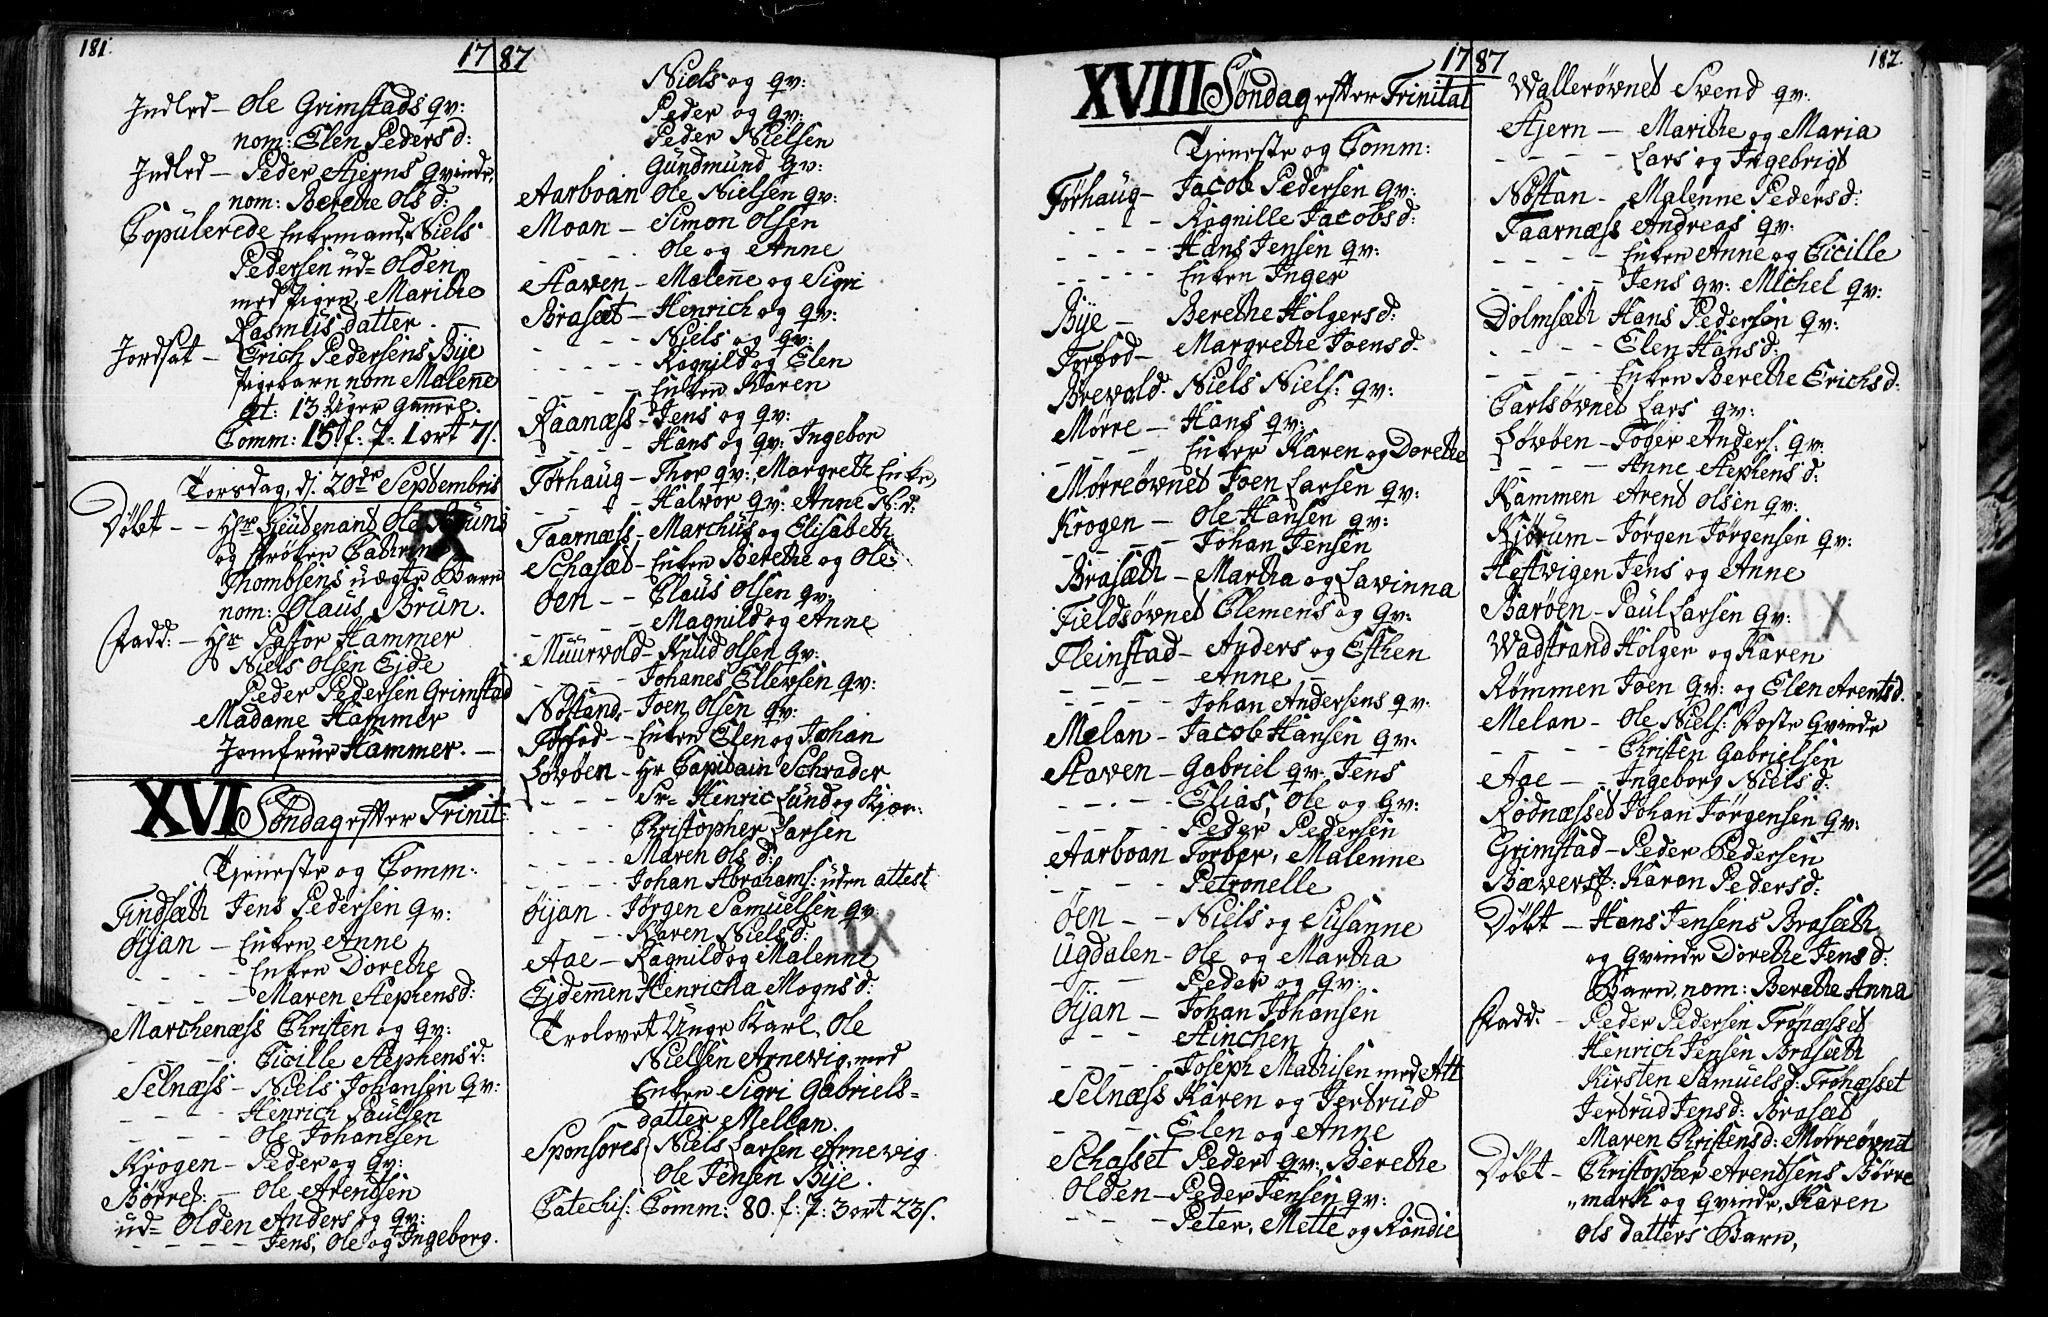 181.
17 87
Indled – Ole Grimstads qv:
nom: Elen Peders d:
Indled – Peder Stjerns Qvinde,
nom: Berethe Ols d:
Copulerede Enkemand Niels
Pedersen ud= Olden
med Pigen, Marithe
Rasmus datter.
Jordsat – Erich Pedersens Bye
Pigebarn nom Malene
gl: 13 Uger gammel.
Comm: 15 f: 7: 1 ort 7 s.
Torsdag, d. 20de Septembris
Døbt – – Hr Leutenant Ole Bruns
og Frøken Cathrine
Thomsens uægte Barn
nom: Olaus Brun.
Fadd: – Hr Pastor Hammer
Niels Olsen Eide
Peder Pedersen Grimstad
Madame Hammer
Jomfrue Hammer. –
XVI Søndag efter Trinit:
Tjeneste og Comm:
Findsæth Jens Pedersen qv:
Øijan – Enken Anne
– – – Enken Dorethe
– – – Maren Stephens d:
Marchenæss Christen og qv:
– – – Cicille Stephens d:
Selnæss – Niels Johansen qv:
– – – Henrich Paulsen
– – – Ole Johansen
Krogen – Peder og qv:
Børref: – Ole Arentsen
ud= Olden Anders og qv:
– – – – Jens, Ole og Ingeborg.
Niels og qv:
Peder og qv:
Peder Nielsen
Gundmund qv:
Aarboan Ole Nielsen qv:
Moan – Simon Olsen
– – – – Ole og Anne
Staven – Malene og Sigri
Brasæt – Henrich og qv:
– – – – Niels og qv:
– – – – Ragnild og Elen
– – – – Enken Karen
Raanæss – Jens og qv:
– – – – Hans og qv: Ingebor
Førhaug – Thor qv: Margrethe Enke
– – – – Halvor qv: Anne N: d:
Taarnæss – Marchus og Elisabeth
Schasæt – Enken Berethe og Ole
Øen – – Claus Olsen qv:
– – – – Magnild og Anne
Muurvold – Knud Olsen qv:
– – – – Johanes Ellevsen qv:
Nøstand – Joen Olsen qv:
Forfod – Enken Elen og Johan
Løvøen – Hr Capitain Schrader
– – – – Sr= Henric Lund og Kjær:
– – – – Christopher Larsen
– – – – Maren Ols d:
– – – – Johan Abrahams: uden attest
Øijan – Jørgen Samuelsen qv
– – – Karen Niels d:
Aae – Ragnild og Malenne
Eidemen Henricha Mogns d:
Trolovet Unge Karl, Ole
Nielsen Arnevig, med
Enken Sigri Gabriels=
datter Mellan.
Sponsores Niels Larsen Arnevig
Ole Jensen Bije.
Catechis: Comm: 80. f: 7: 3 ort 23 s.
XVIII Søndag efter Trinitat
17 87
182.
Tjeneste og Comm:
Førhaug – Jacob Pedersen qv:
– – – – Ragnille Jacobs d:
– – – – Hans Jensen qv:
– – – – Enken Inger
Bije – Berethe Holgers d:
Forfod – Margrethe Joens d.
Brevold. Niels Niels: qv:
Mørre – Hans qv:
– – – – Enken Karen og Dorethe
Mørreøvnet Joen Larsen qv:
Krogen – Ole Hansen qv:
– – – – Johan Jensen
Brasæth – Martha og Lavinna
Fieldsøvnet Clemens og qv:
Fleinstad – Anders og Esthen
– – – – Anne, –
– – – – Johan Andersens qv:
Melan – Jacob Hansen qv:
Staven – Gabriel qv: Jens
– – – – Elias, Ole og qv:
– – – – Peder Pedersen
Aarboan Torber, Malenne
– – – – Petronelle
Øen – – Niels og Susanne
Ugdalen – Ole og Martha
– – – – Peder og qv:
Øijan – Johan Johansen
– – – Hinchen
– – – – Joseph Mathisen med Att
Selnæss Karen og Jertrud
– – – – Elen og Anne
Schasset Peder qv: Berethe
Olden – Peder Jensen qv:
– – – Peter, Mette og Randie
Wallerøvnet Svend qv:
Stjern – Marithe og Maria
– – – – Lars og Ingebrigt
Nøstan – Malenne Peders d:
Taarnæss Andreas qv:
– – – – Enken Anne og Cicille
– – – – Jens qv: Michel qv:
Dolmsæth Hans Pedersen qv:
– – – – Elen Hans d:
– – – – Enken Berethe Erichs d:
Carlsøvnet Lars qv:
Løvøen – Tøger Anders: qv:
– – – – Anne Stephens d:
Kammen Arent Olsen qv:
Kjørum – Jørgen Jørgensen qv:
Hestvigen Jens og Anne
Barøen – Paul Larsen qv:
Wadstrand Holger og Karen
Rømmen Joen qv: og Elen Arents d.
Melan – Ole Niels: Fæste Qvinde
– – – – Christen Gabrielsen
Aae – – Ingeborg Niels d:
Rødnæsset Johan Jørgensen qv:
Grimstad – Peder Pedersen
Bæversf: Karen Peders d:
Døbt – Hans Jensens Brasæth,
og Qvinde Dorethe Jens d:
Barn, nom: Berethe Anna
Fadd. – Peder Pedersen Trønæsset
Henrich Jensen Brasæth
Kirsten Samuels d: Trønæsset
Jertrud Jens d: Brasæt
Maren Christens d: Mørreøvnet
Døbt – Christopher Arentsens Børre
„mark og Qvinde, Karen
Ols datters Barn,